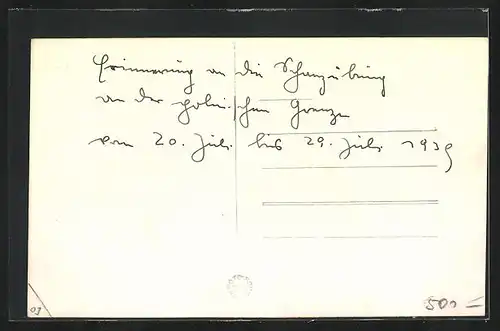 Erinnerung an die Schanzübung
an der polnischen Grenze
vom 20. Juli bis 29. Juli 1939
03
500 -